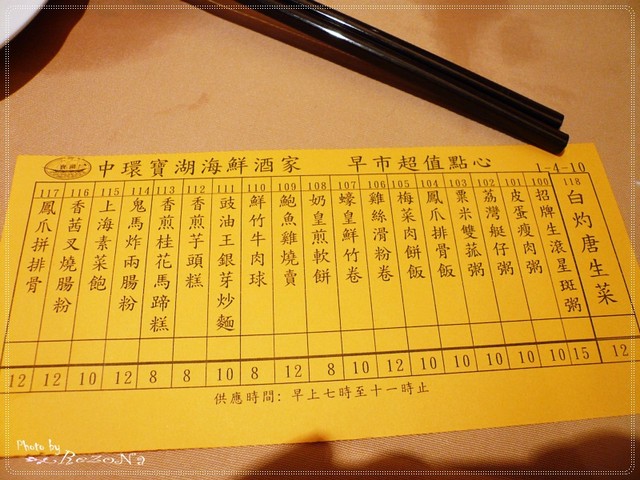 中環寶湖海鮮酒家 早市超值點心 1-4-10
118 白灼唐生菜
100 招牌生滾星斑粥
101 皮蛋瘦肉粥
102 荔灣艇仔粥
103 粟米雙菰粥
104 鳳爪排骨飯
105 梅菜肉餅飯
106 雞絲滑粉卷
107 蠔皇鮮竹卷
108 奶皇煎軟餅
109 鮑魚雞燒賣
110 鮮竹牛肉球
111 豉油王銀芽炒麵
112 香煎芋頭糕
113 香煎桂花馬蹄糕
114 鬼馬炸兩腸粉
115 上海素菜飽
116 香茜叉燒腸粉
117 鳳爪拼排骨
12 12 10 12 8 8 10 8 12 8 10 12 10 10 10 10 10 15 12
供應時間: 早上七時至十一時止
Photo by
RoZoNa